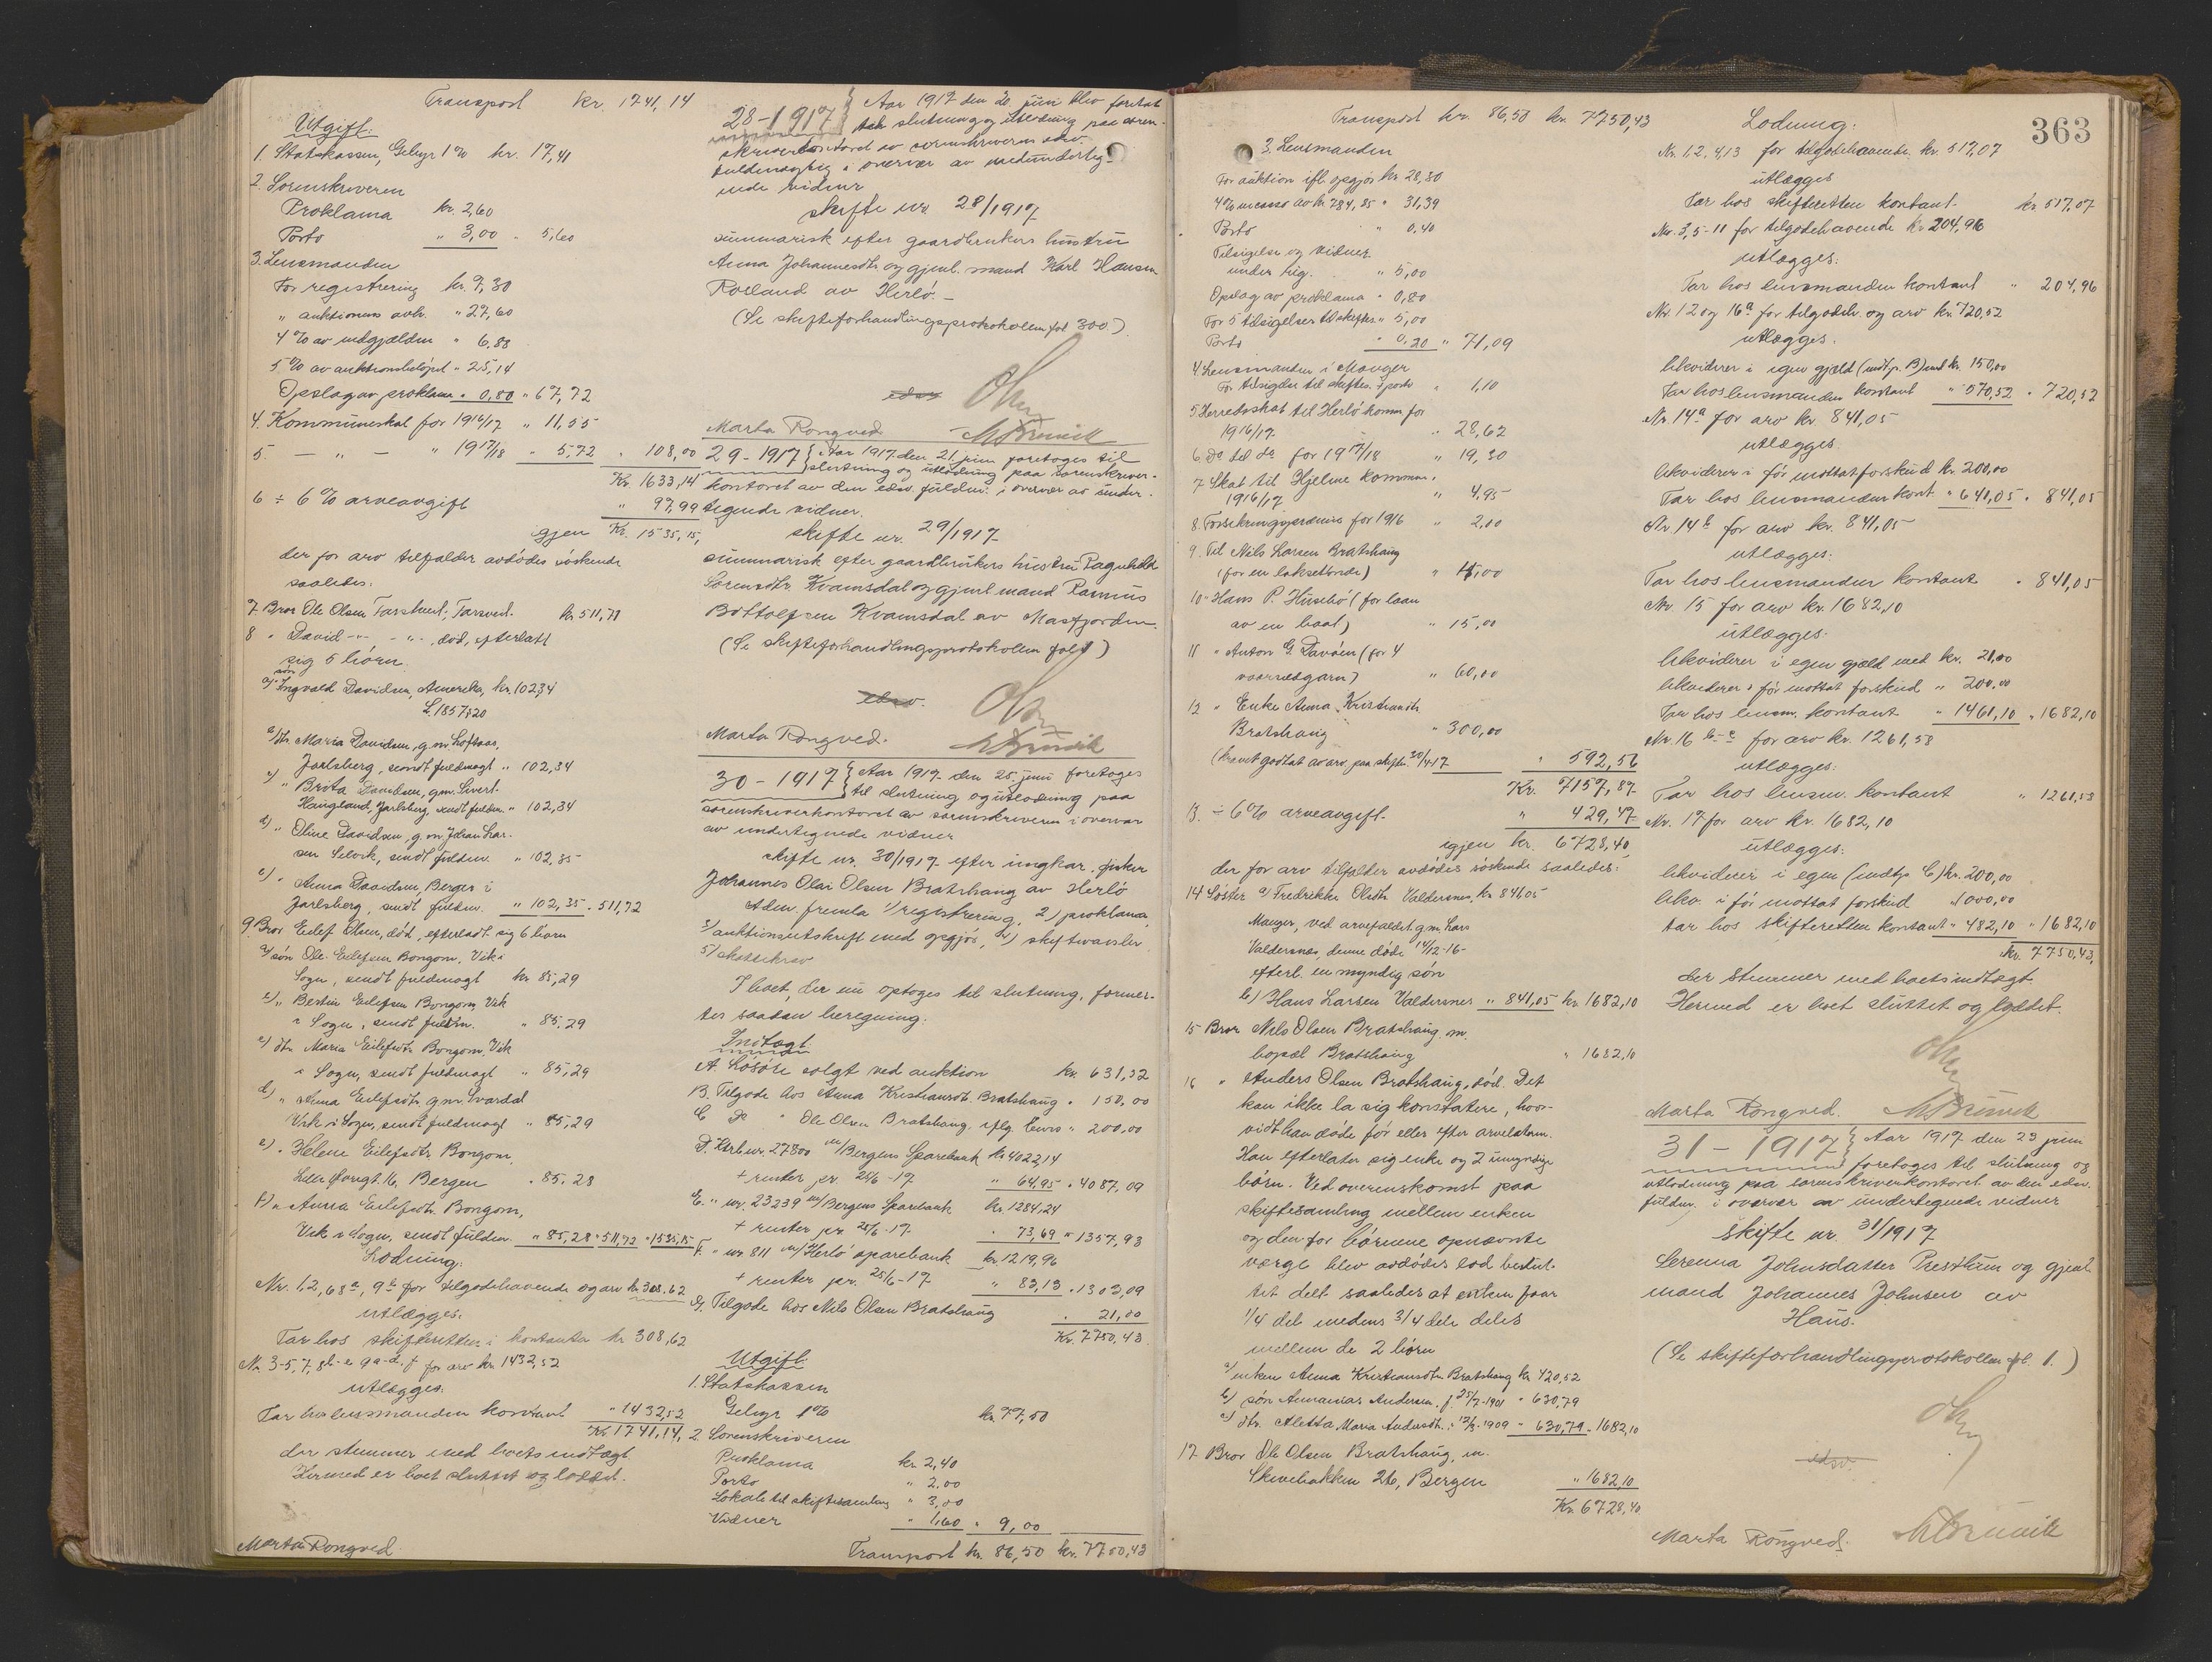 Transport kr. 1741,14
Utgift:
1. Statskassen, Gebyr 1% kr. 17,41
2. Sorenskriveren
Proklama kr. 2,60
Porto " 3,00 " 5,60
3. Lensmanden
For registrering kr. 7,30
" auktionens avh. " 27,60
4% av indgjælden " 6.88
5% av auktionsbeløpet " 25,14
Opslag av proklama " 0,80 " 67,72
4. Kommuneskat for 1916/17 " 11,55
5. — " — " 1917/18 " 5,72 " 108,00
Kr. 1633,14
6 ÷ 6% arveavgift " 97,99
igjen Kr. 1535,15,
der for arv tilfalder avdødes søskende
saaledes:
7. Bror Ole Olsen kr. 511,71
8 " David -"- -"- død, efterlatt
sig 5 børn
a) søn Ingvald Davidsen, Amerika, kr. 102,34
b) dtr. Maria Davidsen, g.m. Loftaas,
Jarlsberg, sendt fuldmagt " 102,34
c) " Brita Davidsen, g.m. Sivert
Haugland, Jarlsberg, sendt fuldm. " 102,34
d) " Oline Davidsen, g.m. Johan Lar-
sen Selvik, sendt fuldm. " 102,35
e) " Anna Davidsen, Berger i
Jarlsberg, sendt fuldm. " 102,35 " 511,72
9. Bror Eilef Olsen, død, efterladt sig 6 børn
a) søn Ole Eilefsen Bongom, Vik i
Sogn, sendt fuldmagt kr. 85,29
b) " Bertin Eilefsen Bongom, Vik
i Sogn, sendt fuldm. " 85,29
c) dtr. Maria Eilefsdtr. Bongom, Vik
i Sogn, sendt fuldmagt " 85,29
d) " Anna Eilefsdtr. g.m. Svardal
Vik i Sogn, sendt fuldmagt " 85,29
e) " Helene Eilefsdtr. Bongom,
16, Bergen " 85,28
f) " Anna Eilefsdtr. Bongom,
Vik i Sogn, sendt fuldm. " 85,28 " 511,72 " 1535,15
Lodning:
Nr. 1, 2, 6, 8a, 9e for tilgodehavende og arv kr. 308,62
utlægges:
Tar hos skifteretten i kontanter kr. 308,62
Nr. 3-5, 7, 8b-e, 9a-d, f for arv kr. 1432,52
utlægges:
Tar hos lensmanden kontant " 1432,52
Kr. 1741,14,
der stemmer med boets indtægt
Hermed er boet sluttet og loddet.
Marta Rongved.
28-1917 } Aar 1917 den 20. juni blev foretat
til slutning og utlodning paa soren-
skriverkontoret av sorenskriveren edsv.
fuldmægtig i overvær av underteg-
nede vidner
skifte nr. 28/1917
summarisk efter gaardbrukers hustru
Anna Johannesdtr. og gjenl. mand Karl Hansen
Rolland av Herlø.—
(Se skifteforhandlingsprotokollen fol. 300.)
edsv.
Marta Rongved
29-1917 } Aar 1917 den 21. juni foretoges til
slutning og utlodning paa sorenskriver-
kontoret av den edsv. fuldm. i overvær av under-
tegnede vidner.
skifte nr. 29/1917
summarisk efter gaardbrukers hustru Ragnhild
Sørensdtr. Kvamsdal og gjenl. mand Rasmus
Bottolfsen Kvamsdal av Masfjorden.
(Se skifteforhandlingsprotokollen fol. 1)
edsv.
Marta Rongved.
30-1917 } Aar 1917 den 25. juni foretoges
til slutning og utlodning paa
sorenskriverkontoret av sorenskriveren i overvær
av undertegnede vidner
skifte nr. 30/1917 efter ungkar, fisker
Johannes Olai Olsen Bratshaug av Herlø
Aden. fremla 1) registrering, 2) proklama,
3) auktionsutskrift med opgjør, 4) skiftevarsler
5) skattekrav
I boet, der nu optoges til slutning, former-
tes saadan beregning:
Indtægt
A. Løsøre solgt ved auktion kr. 631,22
B. Tilgode hos Anna Kristiansdt. Bratshaug " 150,00
C. Do " Ole Olsen Bratshaug, iflg. bevis " 200,00
D. Ktrb. nr. 27800 m/Bergens Sparebank kr. 4022,14
+ renter pr. 25/6-17 " 64,95 " 4087,09
E. " nr. 23239 m/Bergens Sparebank kr. 1284,24
+ renter pr. 25/6-17 " 73,69 " 1357,93
F. " nr. 811 m/Herlø sparebank kr. 1219,96
+ renter pr. 25/6-17 " 83,13 " 1303,09
G. Tilgode hos Nils Olsen Bratshaug " 21,00
Kr. 7750,43
Utgift:
1. Statskassen
Gebyr 1% kr. 77,50
2. Sorenskriveren
Proklama kr. 2,40
Porto " 2,00
Lokale til skiftesamling " 3,00
Vidner " 1,60 " 9,00
Transport kr. 86,50 kr. 7750,43
363
Transport kr. 86,50 kr. 7750,43
3. Lensmanden
For auktion ifl. opgjør kr. 28,30
4% incasso av kr. 784,85 " 31,39
Porto " 0,40
Tilsigelse og vidner
under reg. " 5,00
Opslag av proklama " 0,80
For 5 tilsigelser til skiftes. " 5,00
Porto " 0,20 " 71,09
4. Lensmanden i Manger
For tilsigelse til skiftes. + porto " 1,10
5. Herredsskat til Herlø komm. for
1916/17 " 28,62
6. Do til do for 1917/18 " 19,30
7. Skat til Hjelme kommune
1916/17 " 4,95
8. Forsikringspræmie for 1916 " 2,00
9. Til Nils Larsen Bratshaug
(for en laksetønde) " 15,00
10 " Hans P. Husebø (for laan
av en baat) " 15,00
11 " Anton G. Davøen (for 4
vaarsildgarn) " 60,00
12 " Enke Anna Kristiansdtr.
Bratshaug " 300,00
(kravet godtat av arv. paa skiftes. 30/4-17 " 592,56
Kr. 7157,87
13. ÷ 6% arveavgift " 429,47
igjen kr. 6728,40
der for arv tilfalder avdødes søskende saaledes:
14 Søster a) Fredrikke Olsdtr. Valdersnes, kr. 841,05
Manger, ved arvefaldet g.m. Lars
Valdersnes, denne døde 14/12-16-
efterl. en myndig søn
b) Hans Larsen Valdersnes " 841,05 kr. 1682,10
15 Bror Nils Olsen Bratshaug m.
bopæl Bratshaug " 1682,10
16 " Anders Olsen Bratshaug, død. Det
kan ikke la sig konstatere, hvor-
vidt han døde før eller efter arvelateren.
Han efterlater sig enke og 2 umyndige
børn. Ved overenskomst paa
skiftesamling mellem enken
og den for børnene opnævnte
verge blev avdødes lod beslut-
tet delt saaledes at enken faar
1/4 del medens 3/4 dele deles
mellem de 2 børn
a) enken Anna Kristiansdtr. Bratshaug kr. 420,52
b) søn Annanias Andersen, f. 25/7-1901 " 630,79
c) dtr. Aletta Maria Andersdtr. f. 17/3-1909 " 630,79 " 1682,10
17. Bror Ole Olsen Bratshaug, m.
Skivebakken 26, Bergen " 1682,10
Kr. 6728,40
Lodning:
Nr. 1, 2, 4, 13 for tilgodehavende kr. 517,07
utlægges
Tar hos skifteretten kontant kr. 517,07
Nr. 3, 5-11 for tilgodehavende kr. 204,96
utlægges:
Tar hos lensmanden kontant " 204,96
Nr. 12 og 16a for tilgodeh. og arv kr. 720,52
utlægges:
likviderer i egen gjæld (indtp. B) med kr. 150,00
Tar hos lensmanden kontant " 570,52 " 720,52
Nr. 14a for arv kr. 841,05
utlægges
likviderer i før mottat forskud kr. 200,00
Tar hos lensmanden kont. " 641,05 " 841,05
Nr. 14b for arv kr. 841,05
utlægges:
Tar hos lensmanden kontant " 841,05
Nr. 15 for arv kr. 1682,10
utlægges:
likviderer i egen gjæld med kr. 21,00
likviderer i før mottat forskud " 200,00
Tar hos lensm. kontant " 1461,10 " 1682,10
Nr. 16 b-c for arv kr. 1261,58
utlægges:
Tar hos lensm. kontant " 1261,58
Nr. 17 for arv kr. 1682,10
utlægges:
likviderer i egen (indtp. C) kr. 200,00
likv. i før mottat forskud " 1000,00
tar hos skifteretten kontant " 482,10 " 1682,10
Kr. 7750,43,
der stemmer med boets indtægt
Hermed er boet sluttet og loddet.
Marta Rongved.
31-1917 } Aar 1917 den 29 juni
foretoges til slutning og
utlodning paa sorenskriverkontoret av den edsv.
fuldm. i overvær av undertegnede vidner
skifte nr. 31/1917
Serenna Johnsdatter Presthun og gjenl.
mand Johannes Johnsen av
Haus.
(Se skifteforhandlingsprotokollen fol. 1.)
edsv.
Marta Rongved.